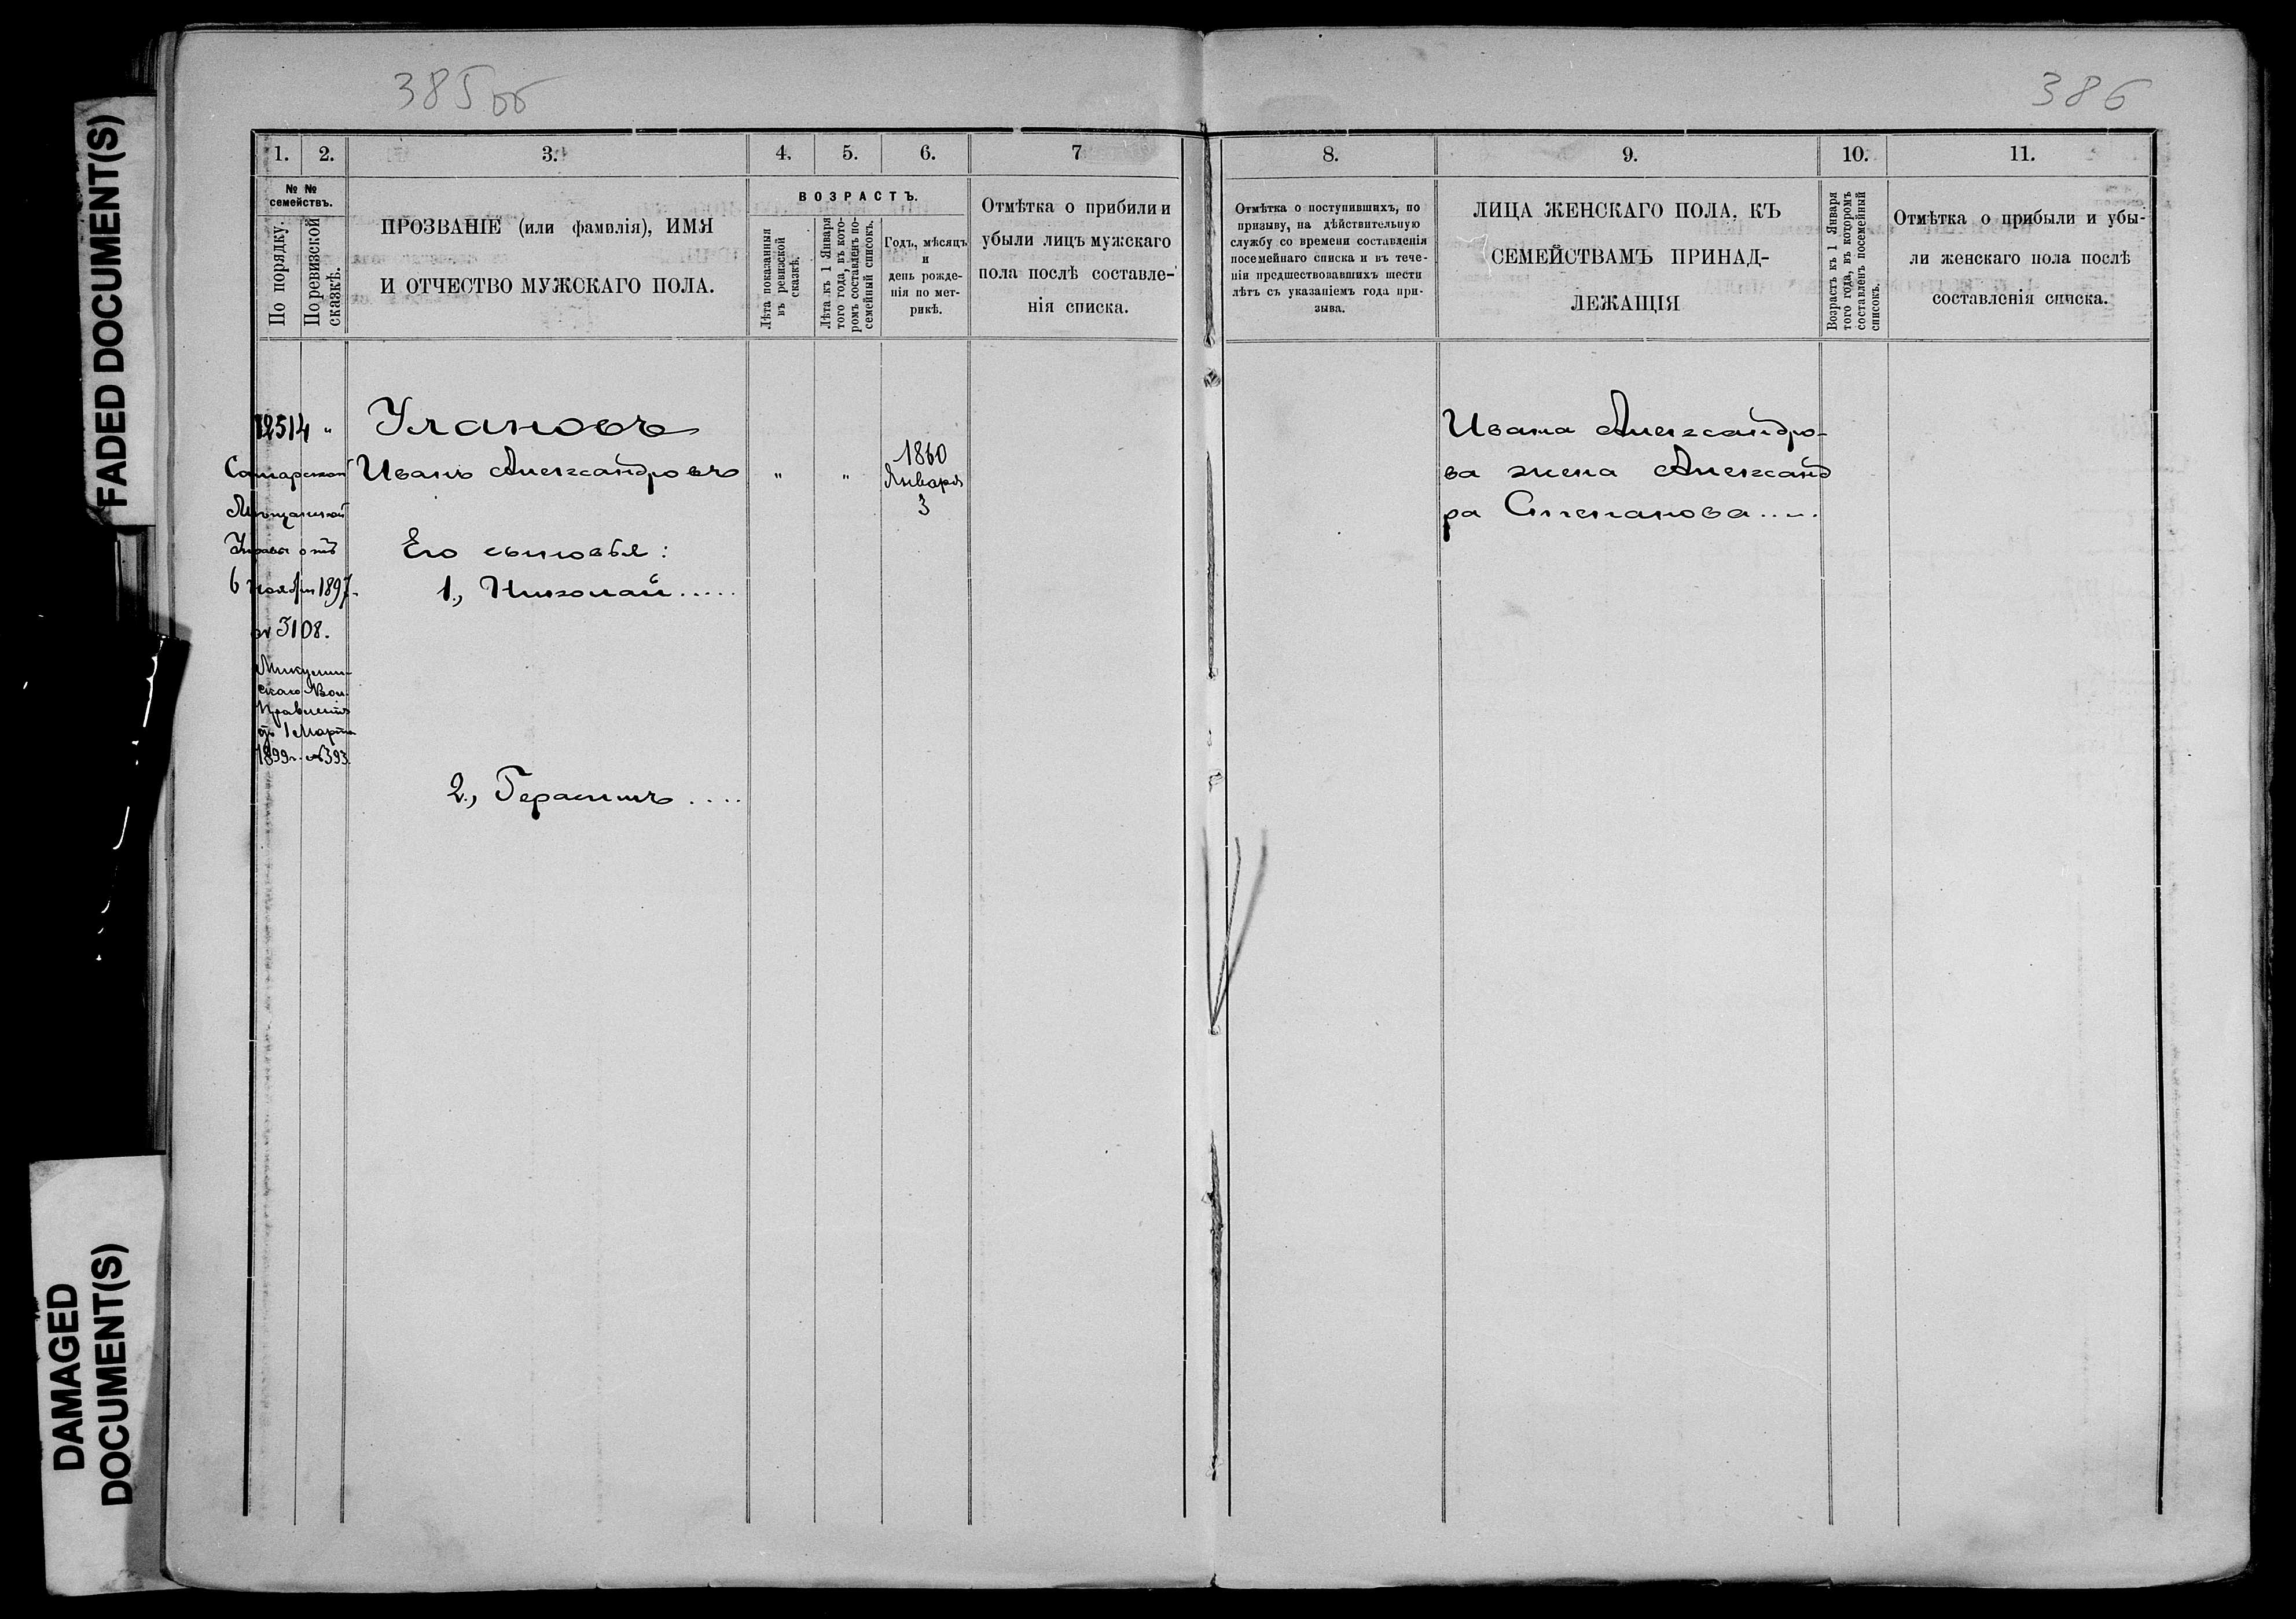 FADED DOCUMENT(S)
DAMAGED
DOCUMENT(S)
385об
1. 2. 3. 4. 5. 6. 7
№ №
семействъ.
По порядку.
По ревизской
сказкѣ.
ПРОЗВАНІЕ (или фамилія), ИМЯ
И ОТЧЕСТВО МУЖСКАГО ПОЛА.
ВОЗРАСТЪ.
Лѣта показанныя
въ ревизской
сказкѣ.
Лѣта къ 1 Января
того года, въ кото-
ромъ составленъ по-
семейный списокъ.
Годъ, мѣсяцъ
и
день рожде-
нія по мет-
рикѣ.
Отмѣтка о прибыли и
убыли лицъ мужскаго
пола послѣ составле-
нія списка.
12514 " Улановъ
Самарской
Мѣщанской
Управы отъ
6 ноября 1897
№ 3108.
Микулин-
скаго Вол.
Правленія
отъ 1 Марта
1899г. №393.
Иванъ Александровъ " "
1860
Января
3
Его сыновья:
1., Николай.....
2., Герасимъ....
386
8. 9. 10. 11.
Отмѣтка о поступившихъ, по
призыву, на дѣйствительную
службу со времени составленія
посемейнаго списка и въ тече-
ніи предшествовавшихъ шести
лѣтъ съ указаніемъ года при-
зыва.
ЛИЦА ЖЕНСКАГО ПОЛА, КЪ
СЕМЕЙСТВАМЪ ПРИНАД-
ЛЕЖАЩІЯ
Возрастъ къ 1 Января
того года, въ которомъ
составленъ посемейный
списокъ.
Отмѣтка о прибыли и убы-
ли женскаго пола послѣ
составленія списка.
Ивана Александро-
ва жена Александ
ра Степанова.....